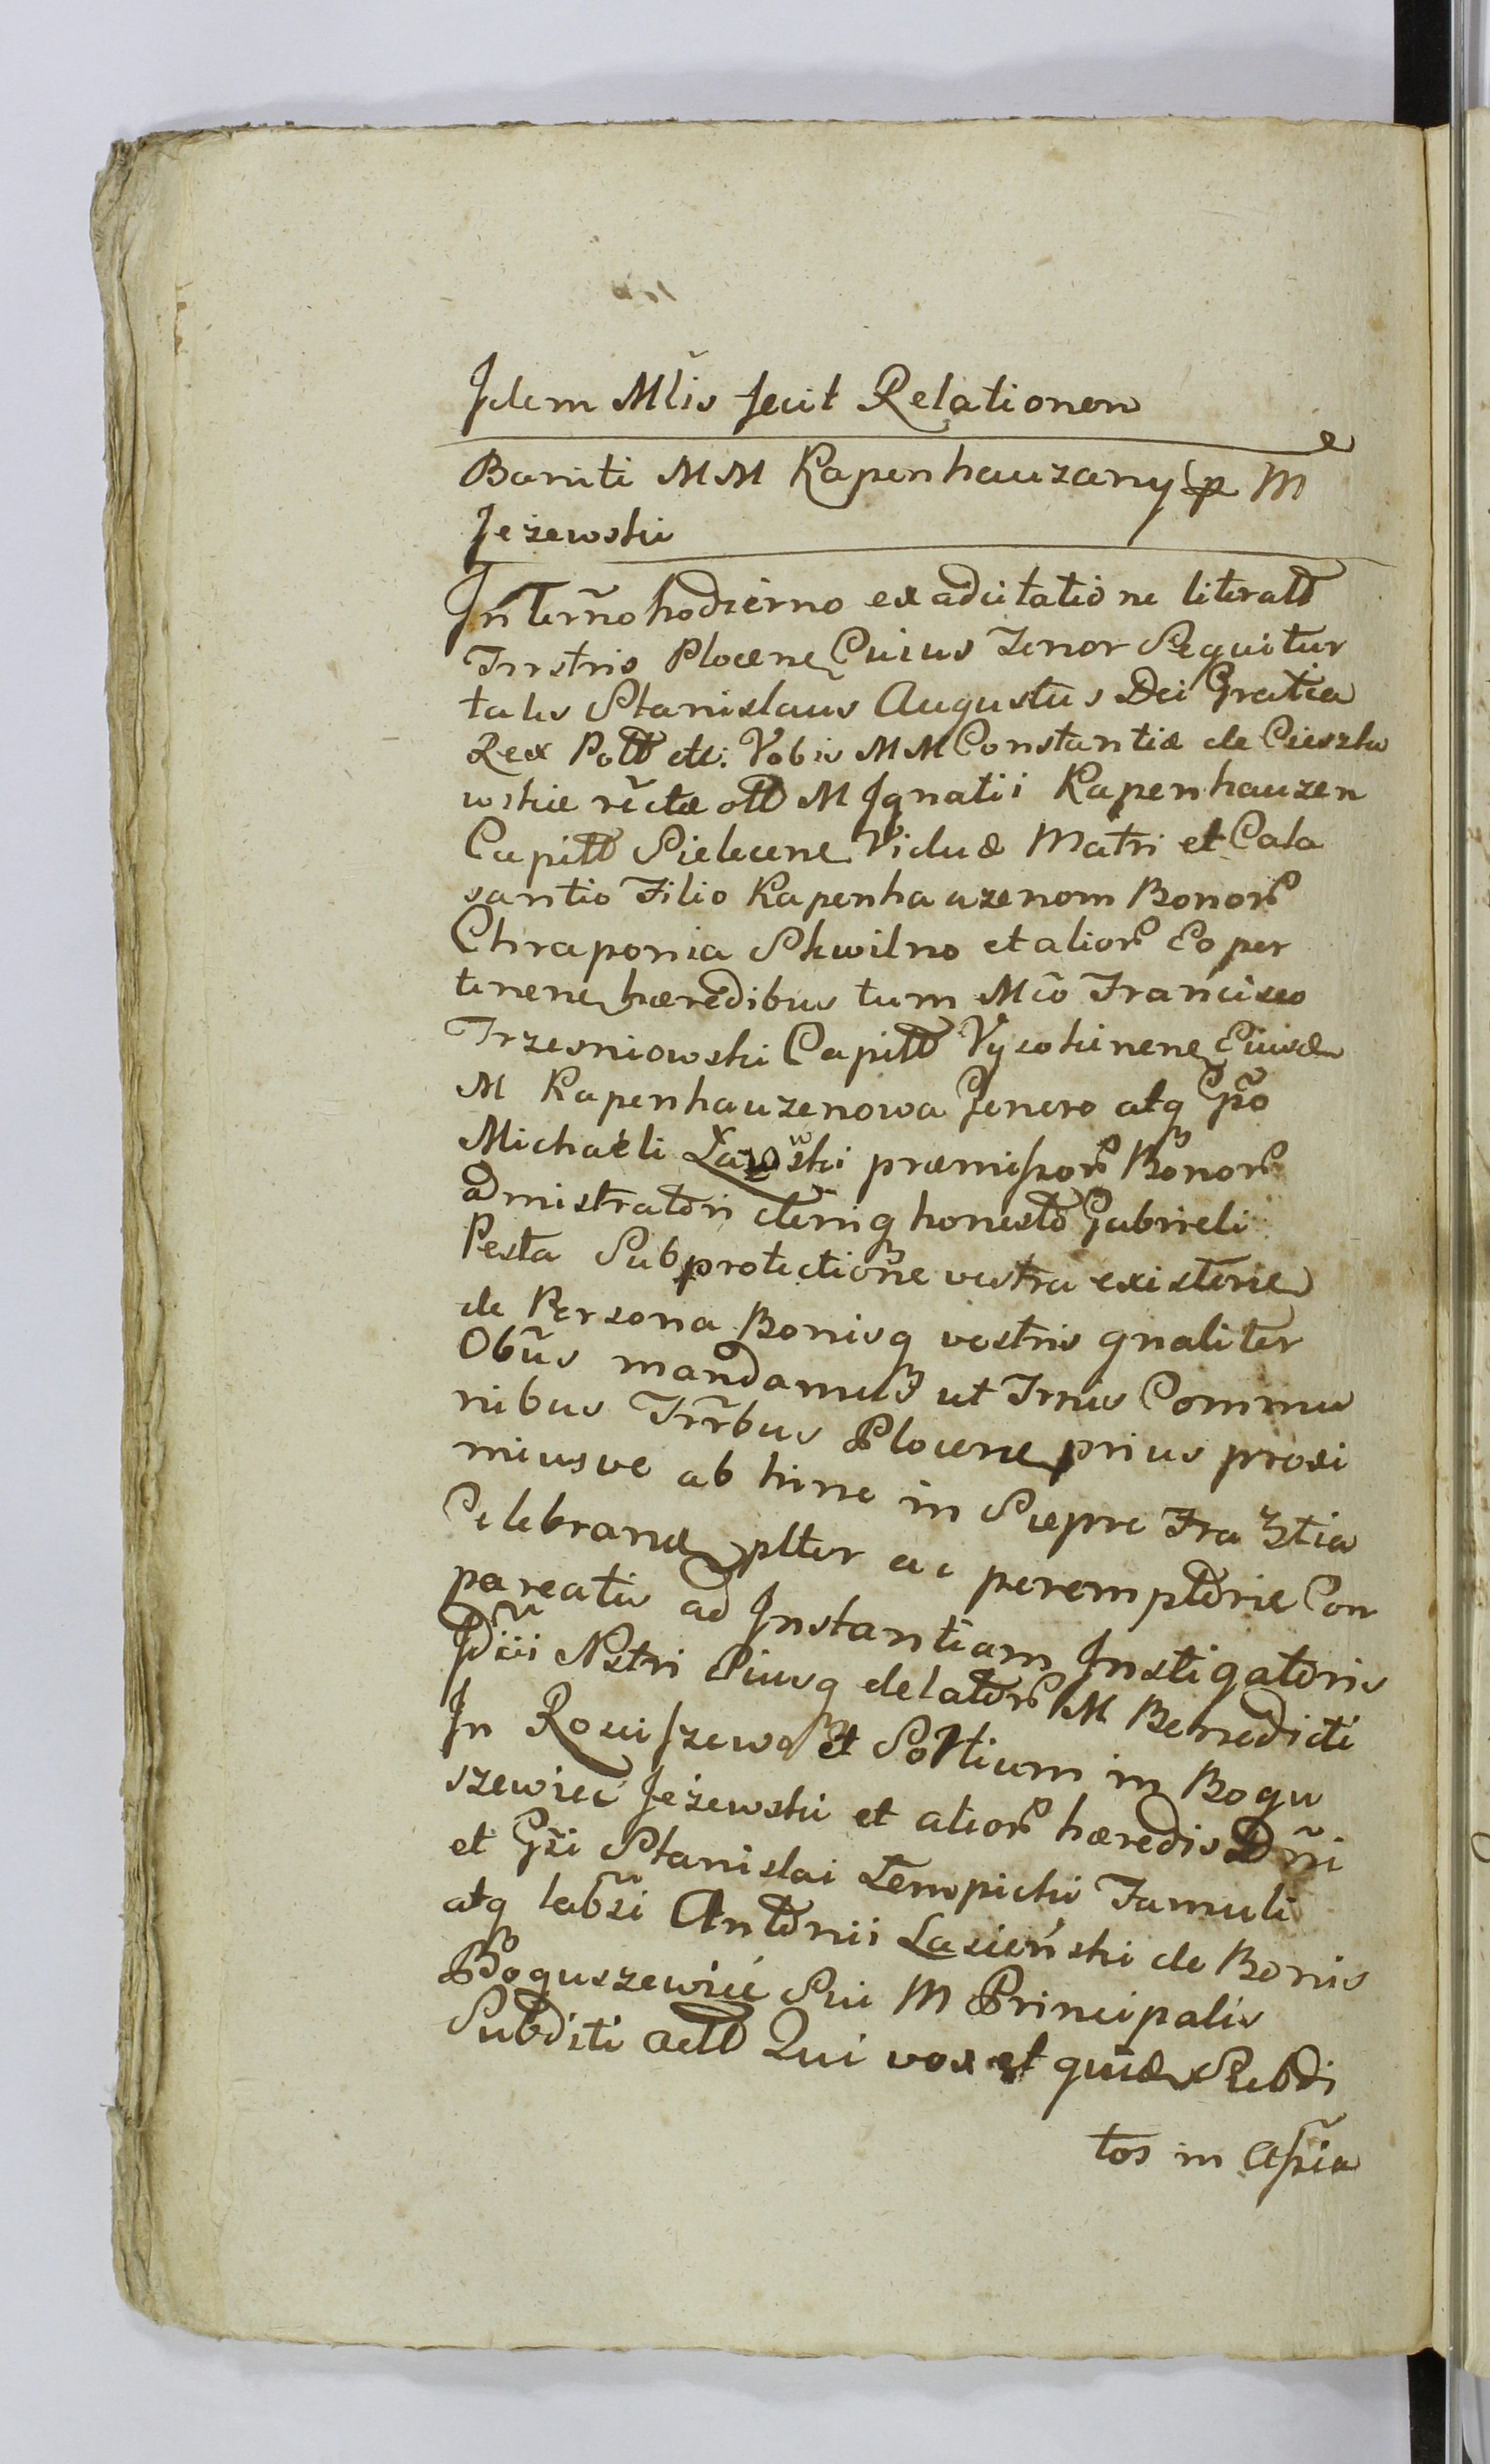 Idem Mlĩs fecit Relationem
Baniti MM Kapenhauzany p M
Jeżewski
In Terño hodierno ex adcitatione literall
Trrstris Plocene Cuius Tenor Sequitur
talis Stanislaus Augustus Dei Gratia
Rex Poll etc: Vobis MM Constantiæ de Cieszko
wskie rẽctæ oll M Ignatii Kapenhauzen
Capitll Sielecene Viduæ Matri et Cala
santio Filio Kapenhauzenom Bonor
Chraponia Skwilno et alior Eo per
tinene hæredibus tum Mcõ Francisco
Trzesniowski Capitll Vysokinene Eiusdem
M Kapenhauzenowa Genero atq Gño
Michaeli Zawski præmissor Bonor
admistratori deniq honesto Gabrieli
Pesta Sub protectione vestra existene
de Persona Bonisq vestris qnaliter
Obũs mandamus ut Trrius Commu
nibus Trr̃bus Plocene prius proxi
miusve ab hinc in Sieprc Fra 3tia
Celebrane pltter ac peremptorie Com
pareatis ad Instantiam Instigatoris
Jd̃cii Nstri Eiusq delator M Benedicti
In Rosciszewo et Sortium in Bogu
szewiec Jeżewski et alior hæredis Dñi
et Gsĩ Stanislai Lempicki Famuli
atq labsĩ Antonii Lasieński de Bonis
Boguszewiec Sui M Principalis
Subditi actll Qui vos et quidem Subdi
tos in Assĩa